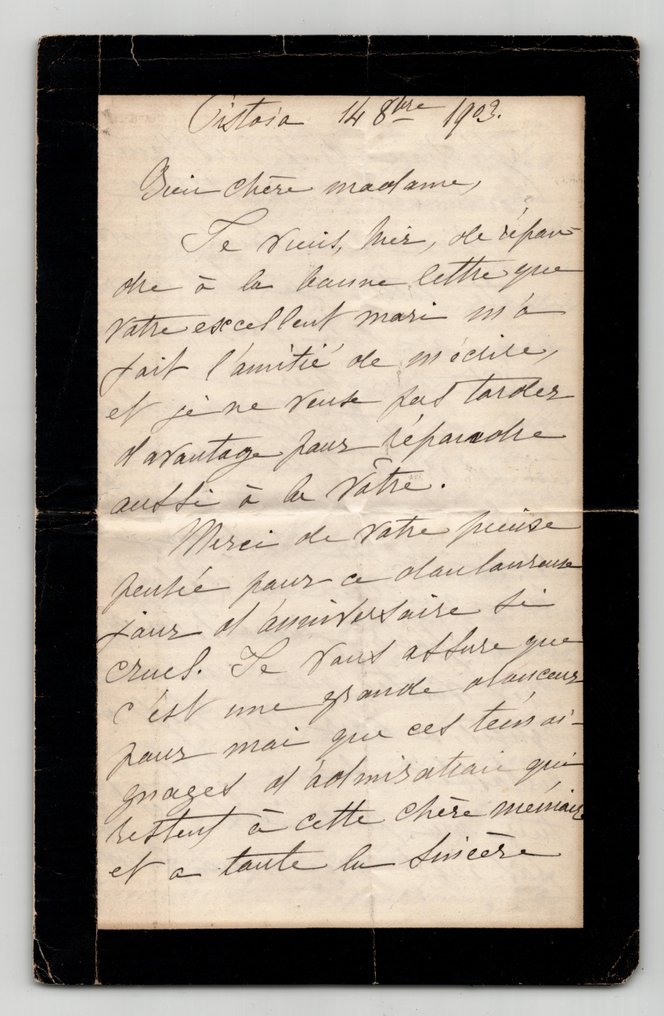 Pistoia 14 8bre 1903.
Bien chère madame,
Je viens, hier, de répon-
dre à la bonne lettre que
votre excellent mari m'a
fait l'amitié de m'écrire,
et je ne veux pas tarder
davantage pour répondre
aussi à la vôtre.
Merci de votre pieuse
pensée pour ce douloureuse
jour d'anniversaire si
cruel. Je vous assure que
c'est une grande douceur
pour moi que ces témoi-
gnages d'admiration qui
restent à cette chère mémoire
et a toute la sincère